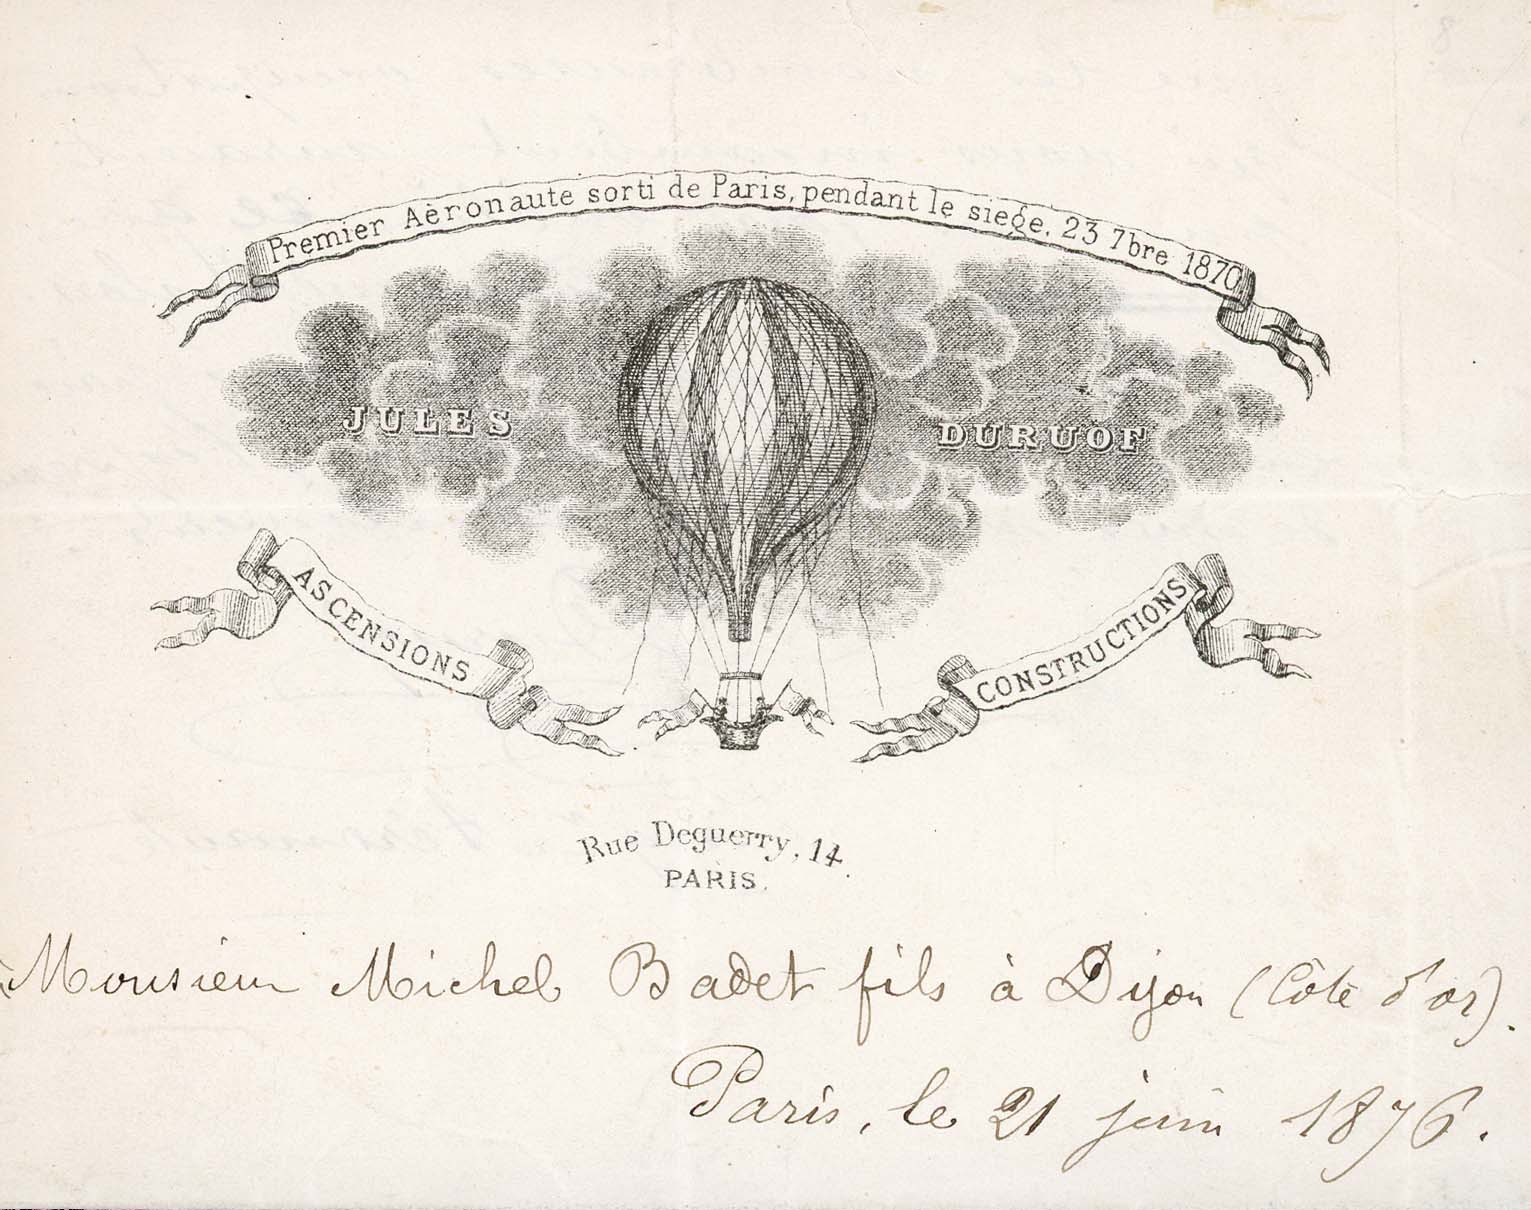 Premier Aéronaute sorti de Paris, pendant le siege. 23 7bre 1870
JULES DURUOF
ASCENSIONS
CONSTRUCTIONS
Rue Deguerry, 14.
PARIS.
Monsieur Michel Badet fils à Dijon (Côte d'or).
Paris, le 21 juin 1876.